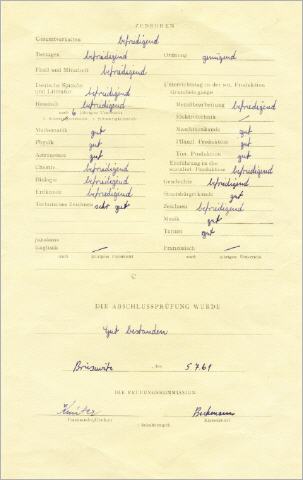 ZENSUREN
Gesamtverhalten befriedigend
Betragen befriedigend Ordnung genügend
Fleiß und Mitarbeit befriedigend
Deutsche Sprache und Literatur befriedigend
Unterrichtstag in der soz. Produktion
Grundlehrgänge
Russisch befriedigend Metallbearbeitung befriedigend
nach 6 jährigem Unterricht
Elektrotechnik /
Mathematik gut Maschinenkunde gut
Physik gut Pflanzl. Produktion gut
Astronomie gut Tier. Produktion gut
Chemie befriedigend Einführung in die sozialist. Produktion befriedigend
Biologie befriedigend Geschichte befriedigend
Erdkunde befriedigend Staatsbürgerkunde gut
Technisches Zeichnen sehr gut Zeichnen befriedigend
Musik gut
Turnen gut
Englisch / Französisch /
nach jährigem Unterricht nach jährigem Unterricht
DIE ABSCHLUSSPRÜFUNG WURDE
Gut bestanden
, den 5.7.61
DIE PRÜFUNGSKOMMISSION